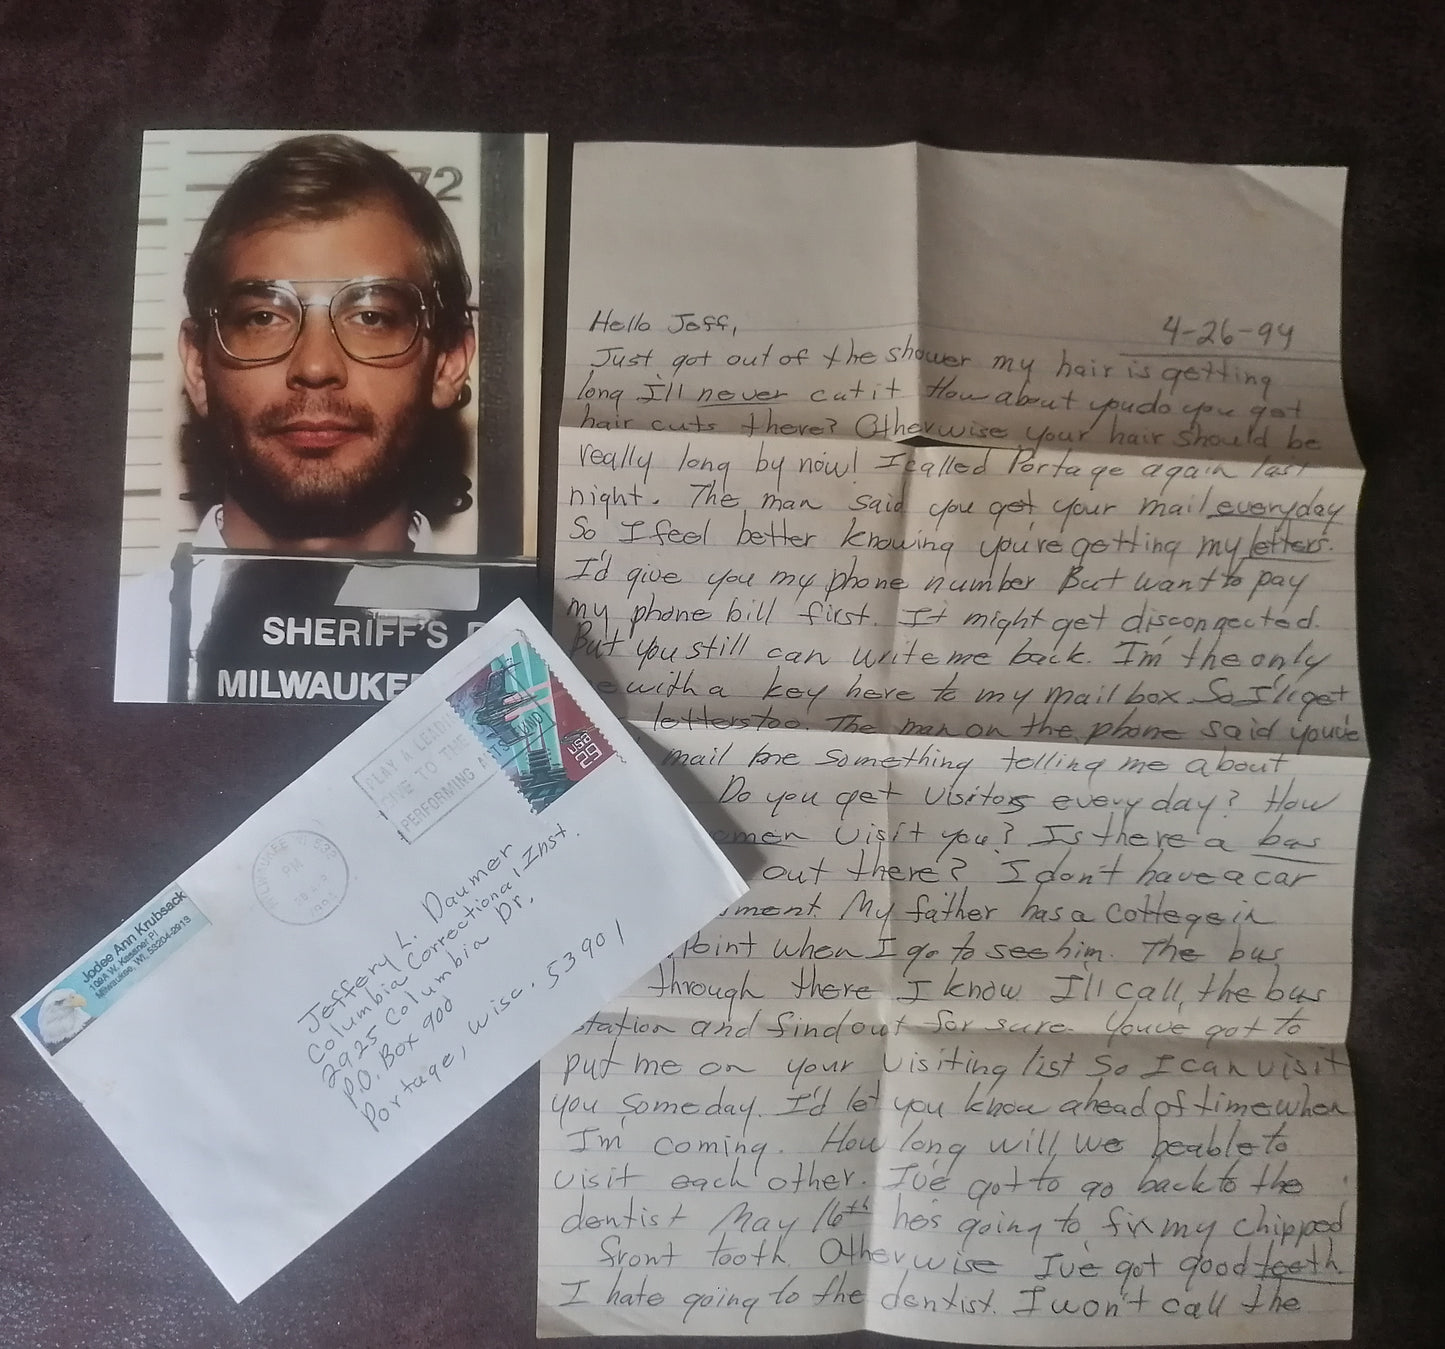 72
SHERIFF'S
MILWAUKE
PLAY A LEAD
GIVE TO THE
PERFORMING ARTS FUND
MILWAUKEE WI 532
PM
1994
Jodee Ann Krubsack
Milwaukee, WI. 53204-2913
Jeffery L. Daumer
Columbia Correctional Inst.
2925 Columbia Dr.
P.O. Box 900
Portage, Wisc. 53901
4-26-94
Hello Jeff,
Just got out of the shower my hair is getting
long I'll never cut it How about you do you get
hair cuts there? Otherwise your hair should be
really long by now! I called Portage again last
night. The man said you get your mail everyday
So I feel better knowing you're getting my letters.
I'd give you my phone number But want to pay
my phone bill first. It might get disconnected.
But you still can write me back. I'm the only
with a key here to my mail box So I'll get
letters too. The man on the phone said you've
mail me something telling me about
Do you get visitors every day? How
visit you? Is there a bus
out there? I don't have a car
My father has a cottege in
Point when I go to see him. The bus
through there I know I'll call, the bus
station and find out for sure. You've got to
put me on your visiting list So I can visit
you someday. I'd let you know ahead of time when
I'm coming. How long will we beable to
visit each other. I've got to go back to the
dentist May 16th he's going to fix my chipped
front tooth. Otherwise I've got good teeth.
I hate going to the dentist. I won't call the